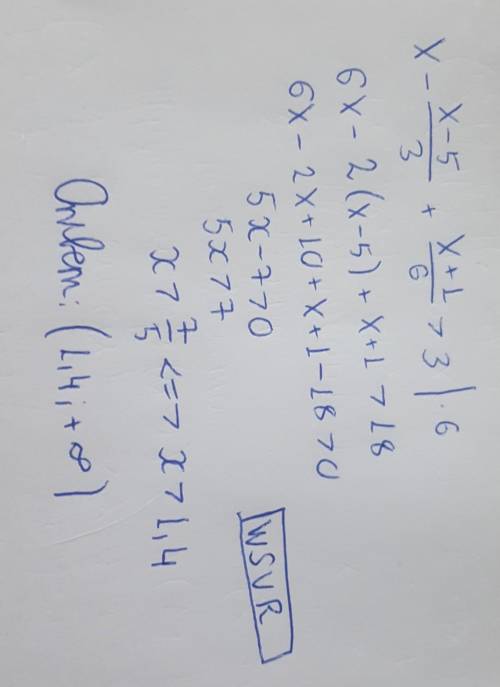 x - \frac{x-5}{3} + \frac{x+1}{6} > 3 | ·6
6x - 2(x-5) + x+1 > 18
6x - 2x+10 + x+1-18>0
5x-7>0
5x>7
x > \frac{7}{5} <=> x > 1,4
Ответ: (1,4; +∞)
WSVR